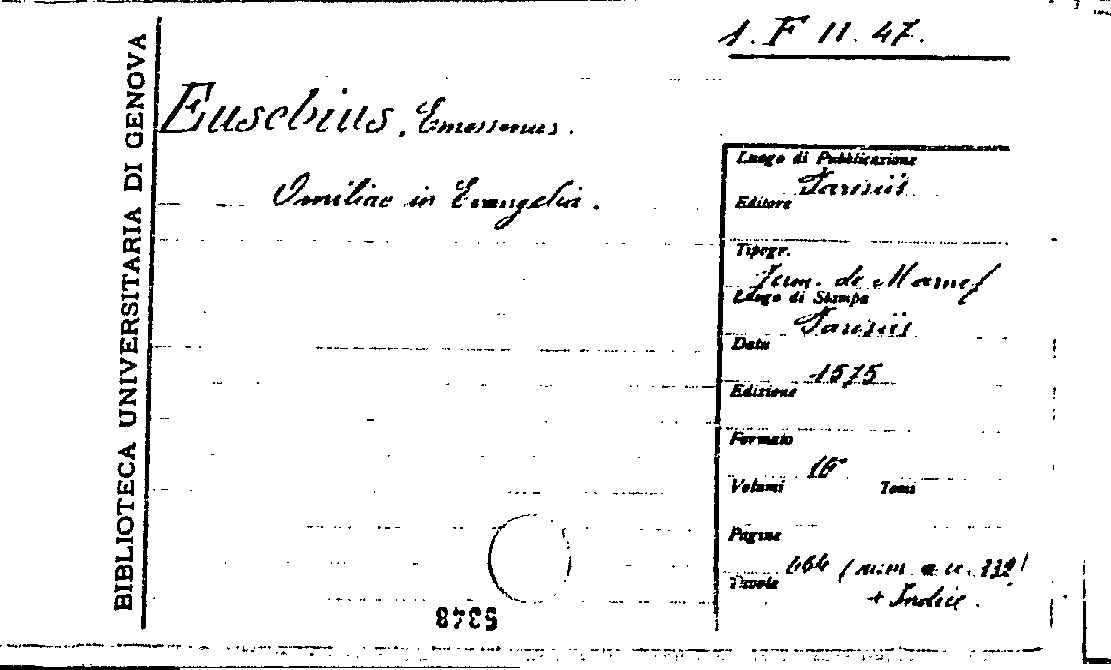 1. F II. 47.
BIBLIOTECA UNIVERSITARIA DI GENOVA
Eusebius, Emessenus.
Omiliae in Evangelia.
Luogo di Pubblicazione
Parisiis
Editore
Tipogr.
de Marnef
Luogo di Stampa
Parisiis
Data
1575
Edizione
Formato
16°
Volumi Tomi
Pagine
464 (num. a c.
Tavole
+ Indice.